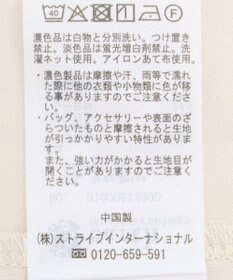 40
濃色品は白物と分別洗い。つけ置き
禁止。淡色品は蛍光増白剤禁止。洗
濯ネット使用。アイロンあて布使用。
・濃色製品は摩擦や汗、雨等で濡れ
た際に他の衣類や小物類に色が移
る事がありますのでご注意くださ
い。
・バッグ、アクセサリーや表面のざ
らついたものと摩擦されると生地
が引っかかりやすい特性がありま
す。
また、強い力がかかると生地目が
開くことがありますのでご注意く
ださい。
中国製
(株)ストライプインターナショナル
☎ 0120-659-591